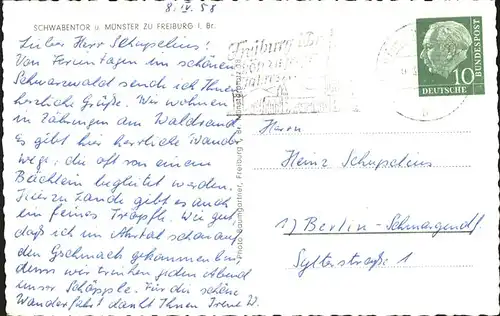 8.IV.58
SCHWABENTOR u. MÜNSTER ZU FREIBURG I. Br.
Lieber Herr Schapelius!
Von Ferientagen im schönen
Schwarzwald sende ich Ihnen
herzliche Grüße. Wir wohnen
in Zähringen am Waldrand.
Es gibt hier herrliche Wander
wege, die oft von einem
Bächlein begleitet werden.
Hierzulande gibt es auch
ein feines Tröpfle. Wie gut,
daß ich im Ahrtal schon auf
den Geschmack gekommen bin,
denn wir trinken jeden Abend
unser Schöpple. Für die schöne
Wanderfahrt dankt Ihnen Irene W.
Photo Baumgartner, Freiburg i. Br.
Freiburg
10
DEUTSCHE
BUNDESPOST
Herrn
Heinz Schapelius
1) Berlin-Schmargendf.
Sylterstraße 1